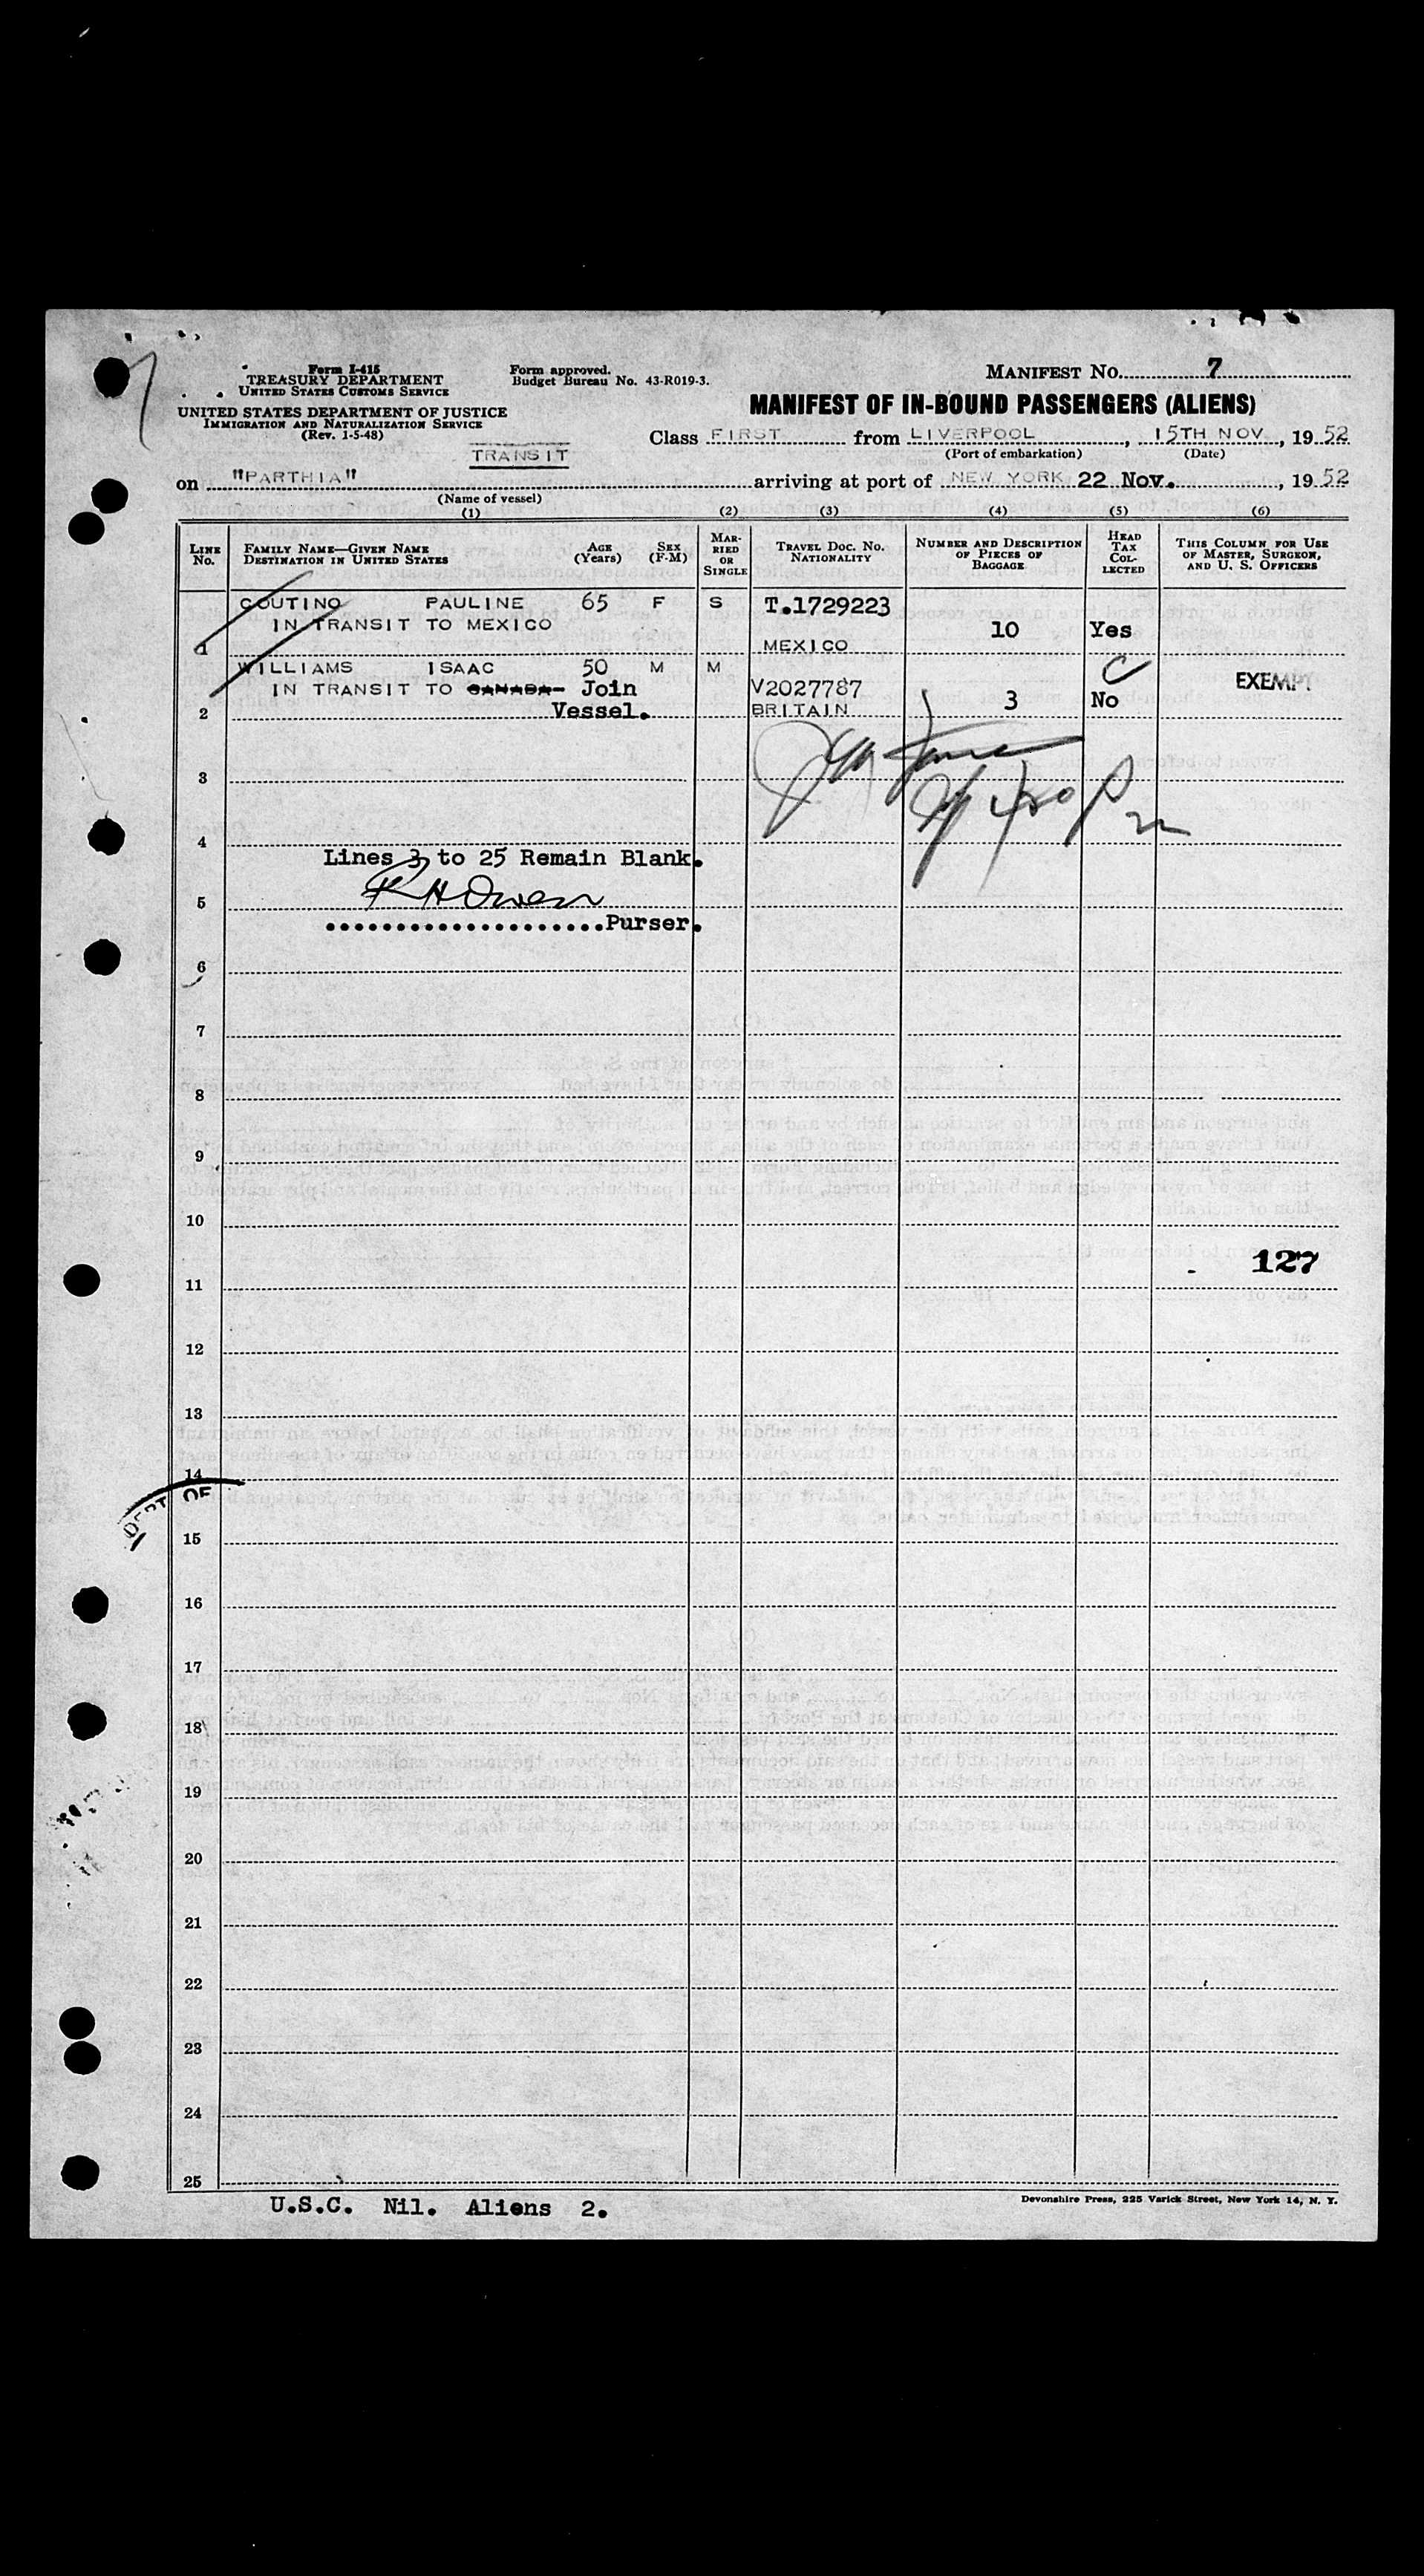 Form I-415
TREASURY DEPARTMENT
UNITED STATES CUSTOMS SERVICE
UNITED STATES DEPARTMENT OF JUSTICE
IMMIGRATION AND NATURALIZATION SERVICE
(Rev. 1-5-48)
Form approved.
Budget Bureau No. 43-R019-3.
MANIFEST NO. 7
MANIFEST OF IN-BOUND PASSENGERS (ALIENS)
Class FIRST from LIVERPOOL, 15TH NOV., 19 52
(Port of embarkation) (Date)
TRANSIT
on "PARTHIA" arriving at port of NEW YORK 22 Nov., 19 52
(Name of vessel)
(1) (2) (3) (4) (5) (6)
LINE No. FAMILY NAME—GIVEN NAME DESTINATION IN UNITED STATES AGE (Years) SEX (F-M) MARRIED OR SINGLE TRAVEL DOC. NO. NATIONALITY NUMBER AND DESCRIPTION OF PIECES OF BAGGAGE HEAD TAX COLLECTED THIS COLUMN FOR USE OF MASTER, SURGEON, AND U. S. OFFICERS
COUTINO PAULINE 65 F S T.1729223
IN TRANSIT TO MEXICO 10 Yes
1 MEXICO
WILLIAMS ISAAC 50 M M C EXEMPT
IN TRANSIT TO CANADA Join V2027787
2 Vessel. BRITAIN 3 No
3
4
Lines 3 to 25 Remain Blank.
R H Owen
5
Purser.
6
7
8
9
10
127
11
12
13
14
DEPT OF
15
16
17
18
19
20
21
22
23
24
25
U.S.C. Nil. Aliens 2.
Devonshire Press, 225 Varick Street, New York 14, N. Y.